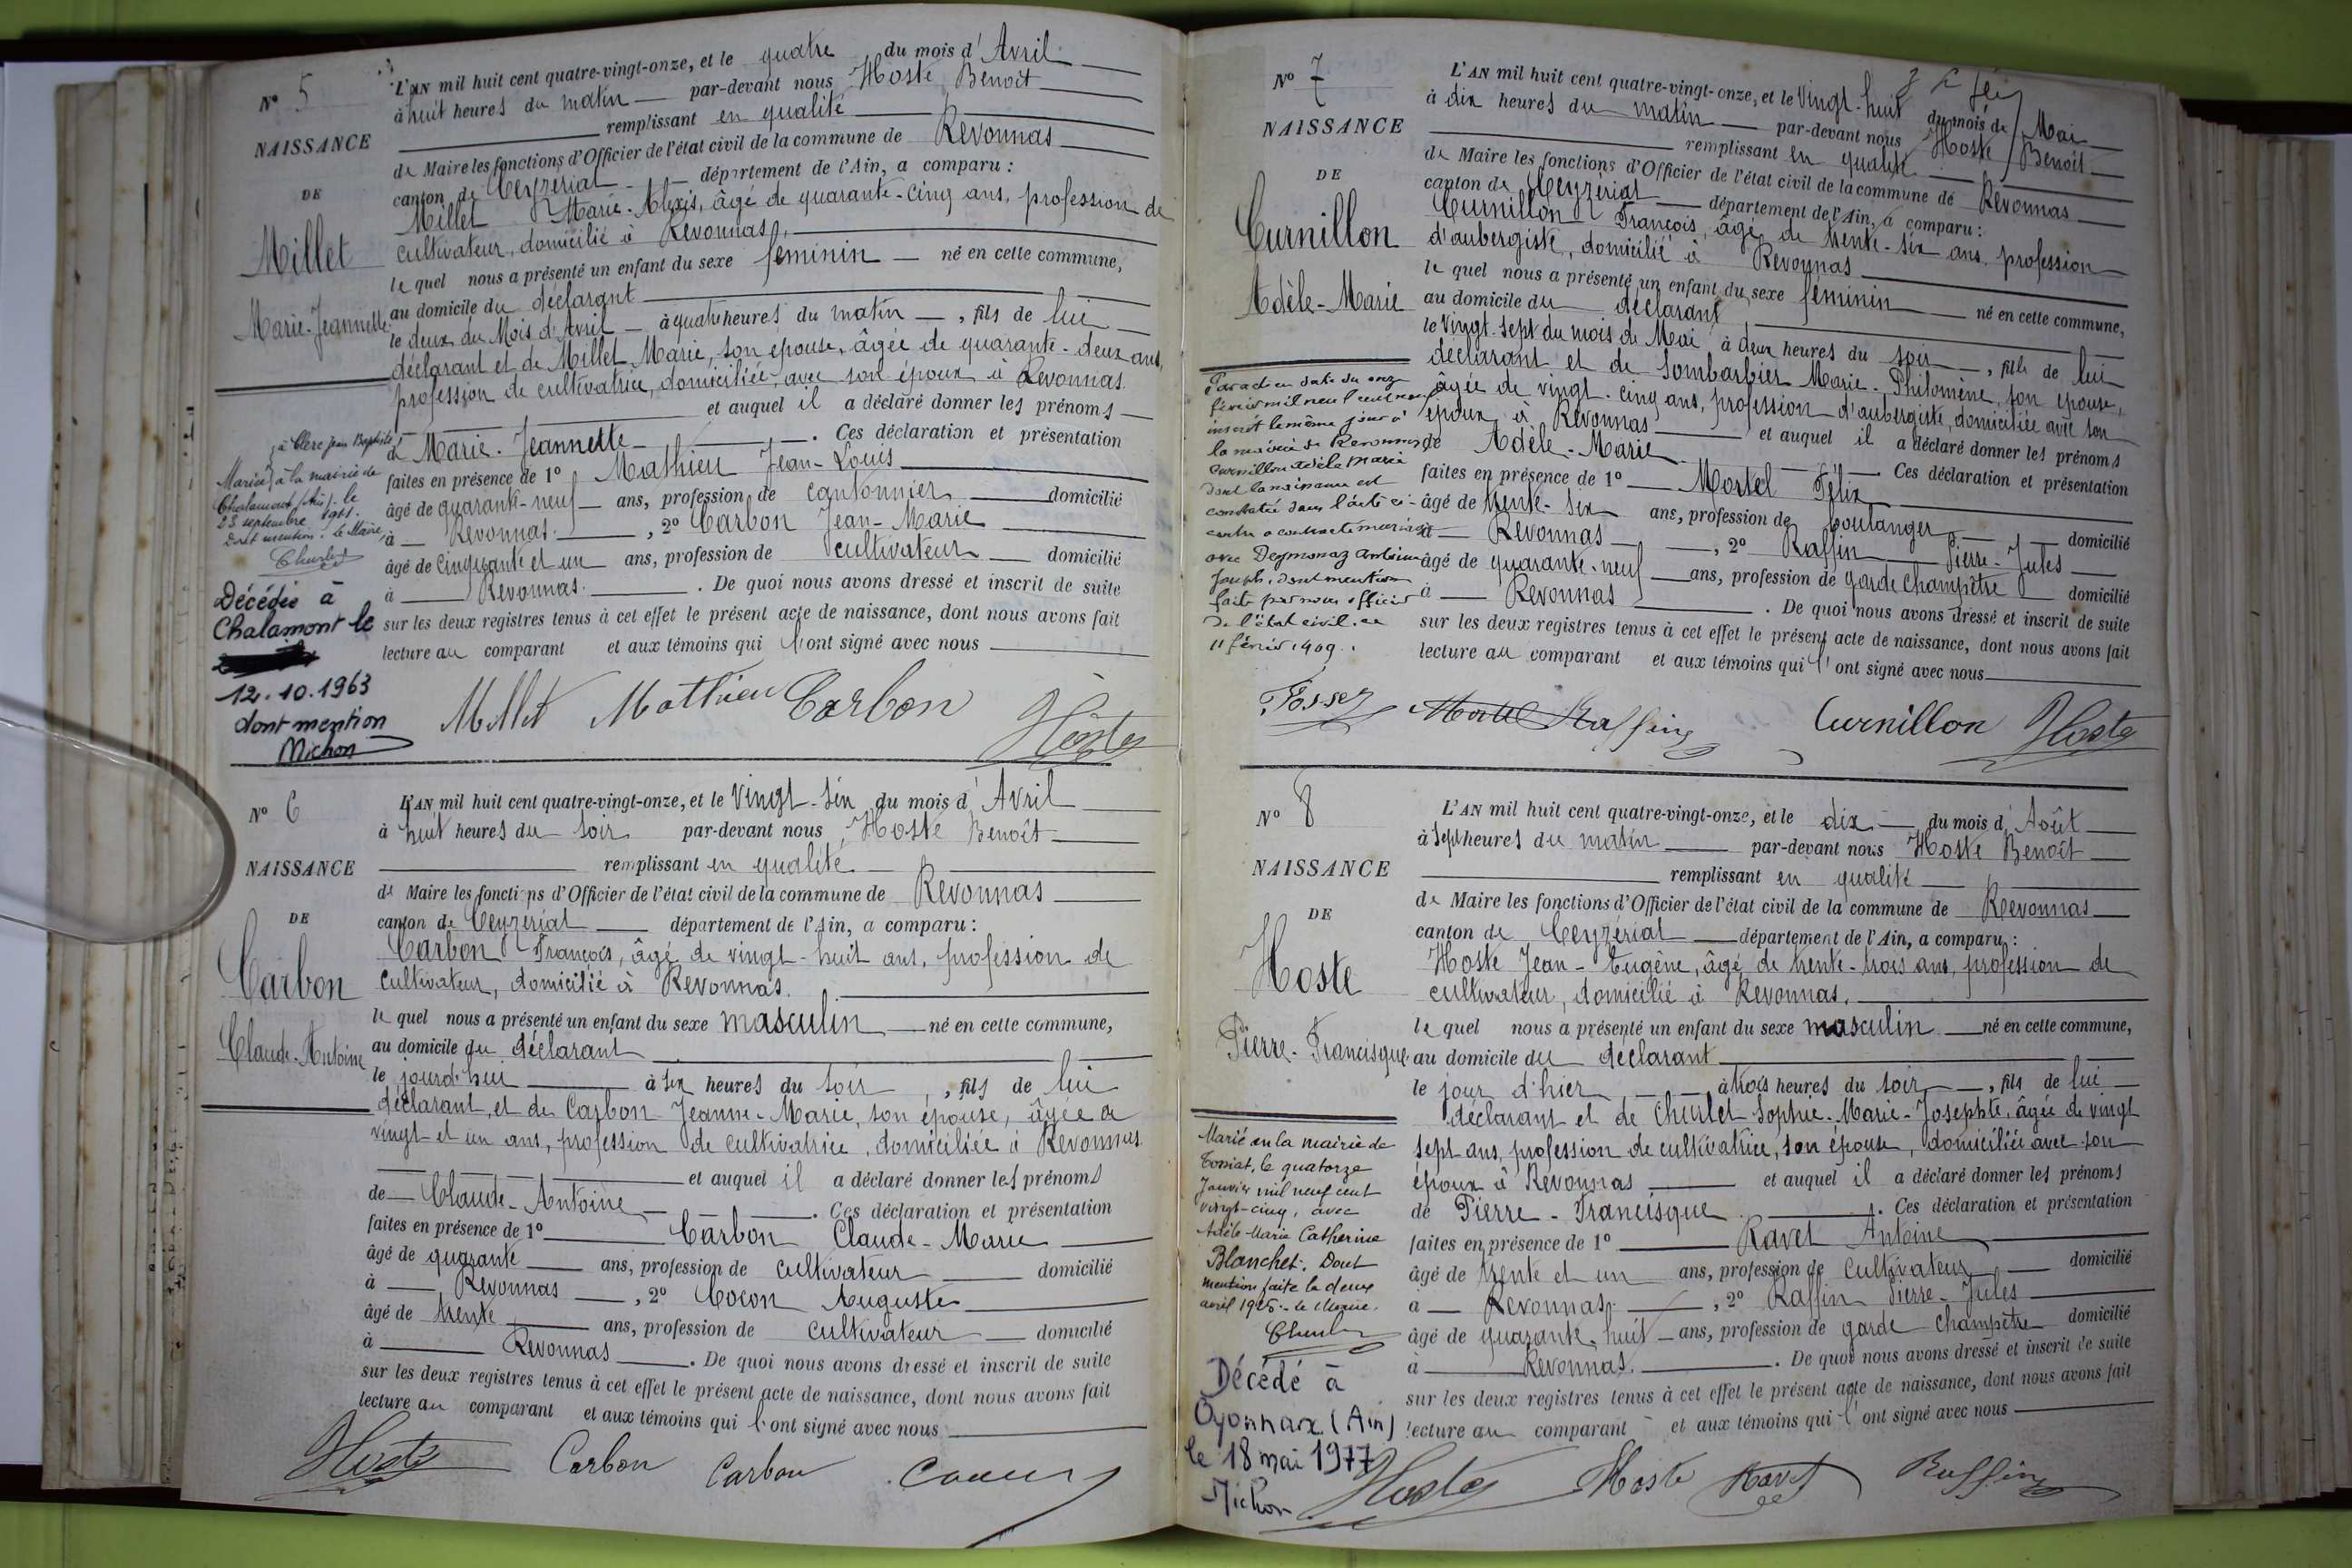 N° 5
NAISSANCE
DE
Millet
Marie-Jeannette
L'AN mil huit cent quatre-vingt-onze, et le quatre du mois d'Avril
à huit heures du matin par-devant nous Hoste Benoît
remplissant en qualité
de Maire les fonctions d'Officier de l'état civil de la commune de Revonnas
canton de Ceyzériat département de l'Ain, a comparu :
Millet Marie-Alexis, âgé de quarante-cinq ans, profession de
cultivateur, domicilié à Revonnas,
le quel nous a présenté un enfant du sexe féminin né en cette commune,
au domicile du déclarant
le deux du Mois d'Avril à quatre heures du matin, fils de lui
déclarant et de Millet Marie, son épouse, âgée de quarante-deux ans,
profession de cultivatrice, domiciliée, avec son époux à Revonnas
et auquel il a déclaré donner les prénoms
de Marie-Jeannette. Ces déclaration et présentation
faites en présence de 1° Mathieu Jean-Louis
âgé de quarante-neuf ans, profession de cantonnier domicilié
à Revonnas, 2° Carbon Jean-Marie
âgé de cinquante et un ans, profession de cultivateur domicilié
à Revonnas. De quoi nous avons dressé et inscrit de suite
sur les deux registres tenus à cet effet le présent acte de naissance, dont nous avons fait
lecture au comparant et aux témoins qui l'ont signé avec nous
à Clerc Jean Baptiste
Mariée à la mairie de
Chalamont (Ain) le
23 septembre 1911.
Dont mention. le Maire,
Churlet
Décédée à
Chalamont le
12.10.1963
dont mention
Michon
Millet Mathieu Carbon Hoste
N° 6
NAISSANCE
DE
Carbon
Claude-Antoine
L'AN mil huit cent quatre-vingt-onze, et le vingt-six du mois d'Avril
à huit heures du soir par-devant nous Hoste Benoît
remplissant en qualité
de Maire les fonctions d'Officier de l'état civil de la commune de Revonnas
canton de Ceyzériat département de l'Ain, a comparu :
Carbon François, âgé de vingt-huit ans, profession de
cultivateur, domicilié à Revonnas.
le quel nous a présenté un enfant du sexe masculin né en cette commune,
au domicile du déclarant
le jourd'hui à six heures du soir, fils de lui
déclarant, et de Carbon Jeanne-Marie, son épouse, âgée de
vingt et un ans, profession de cultivatrice, domiciliée à Revonnas
et auquel il a déclaré donner les prénoms
de Claude-Antoine. Ces déclaration et présentation
faites en présence de 1° Carbon Claude-Marie
âgé de quarante ans, profession de cultivateur domicilié
à Revonnas, 2° Cocon Auguste
âgé de trente ans, profession de cultivateur domicilié
à Revonnas. De quoi nous avons dressé et inscrit de suite
sur les deux registres tenus à cet effet le présent acte de naissance, dont nous avons fait
lecture au comparant et aux témoins qui l'ont signé avec nous
Hoste Carbon Carbon
N° 7
NAISSANCE
DE
Curnillon
Adèle-Marie
L'AN mil huit cent quatre-vingt-onze, et le vingt-huit du mois de Mai
à dix heures du matin par-devant nous Hoste Benoît
remplissant en qualité
de Maire les fonctions d'Officier de l'état civil de la commune de Revonnas
canton de Ceyzériat département de l'Ain, a comparu :
Curnillon François, âgé de trente-six ans, profession
d'aubergiste, domicilié à Revonnas
le quel nous a présenté un enfant du sexe féminin né en cette commune,
au domicile du déclarant
le vingt-sept du mois de Mai à deux heures du soir, fille de lui
déclarant et de Sombardier Marie-Philomène, son épouse,
âgée de vingt-cinq ans, profession d'aubergiste, domiciliée avec son
époux à Revonnas et auquel il a déclaré donner les prénoms
de Adèle-Marie. Ces déclaration et présentation
faites en présence de 1° Mortel Félix
âgé de trente-six ans, profession de boulanger domicilié
à Revonnas, 2° Raffin Pierre-Jules
âgé de quarante-neuf ans, profession de garde champêtre domicilié
à Revonnas. De quoi nous avons dressé et inscrit de suite
sur les deux registres tenus à cet effet le présent acte de naissance, dont nous avons fait
lecture au comparant et aux témoins qui l'ont signé avec nous
Par acte en date du onze
février mil neuf cent neuf
inscrit le même jour à
la mairie de Revonnas
Curnillon Adèle Marie
dont la naissance est
constatée dans l'acte ci-
contre a contracté mariage
avec Deymonaz Antoine
Joseph, dont mention
faite par nous officier
de l'état civil, ce
11 février 1909.
Tosser Mortel Raffin Curnillon Hoste
N° 8
NAISSANCE
DE
Hoste
Pierre-Francisque
L'AN mil huit cent quatre-vingt-onze, et le dix du mois d'Août
à sept heures du matin par-devant nous Hoste Benoît
remplissant en qualité
de Maire les fonctions d'Officier de l'état civil de la commune de Revonnas
canton de Ceyzériat département de l'Ain, a comparu :
Hoste Jean-Eugène, âgé de trente-trois ans, profession de
cultivateur, domicilié à Revonnas.
le quel nous a présenté un enfant du sexe masculin né en cette commune,
au domicile du déclarant
le jour d'hier à trois heures du soir, fils de lui
déclarant et de Churlet Sophie-Marie-Josephte, âgée de vingt
sept ans, profession de cultivatrice, son épouse, domiciliée avec son
époux à Revonnas et auquel il a déclaré donner les prénoms
de Pierre-Francisque. Ces déclaration et présentation
faites en présence de 1° Ravet Antoine
âgé de trente et un ans, profession de cultivateur domicilié
à Revonnas, 2° Raffin Pierre-Jules
âgé de quarante-huit ans, profession de garde champêtre domicilié
à Revonnas. De quoi nous avons dressé et inscrit de suite
sur les deux registres tenus à cet effet le présent acte de naissance, dont nous avons fait
lecture au comparant et aux témoins qui l'ont signé avec nous
Marié en la mairie de
Toniat, le quatorze
Janvier mil neuf cent
vingt-cinq, avec
Adèle Marie Catherine
Blanchet. Dont
mention faite le deux
avril 1925. le Maire,
Churlet
Décédé à
Oyonnax (Ain)
le 18 mai 1977
Michon
Hoste Hoste Ravet Raffin